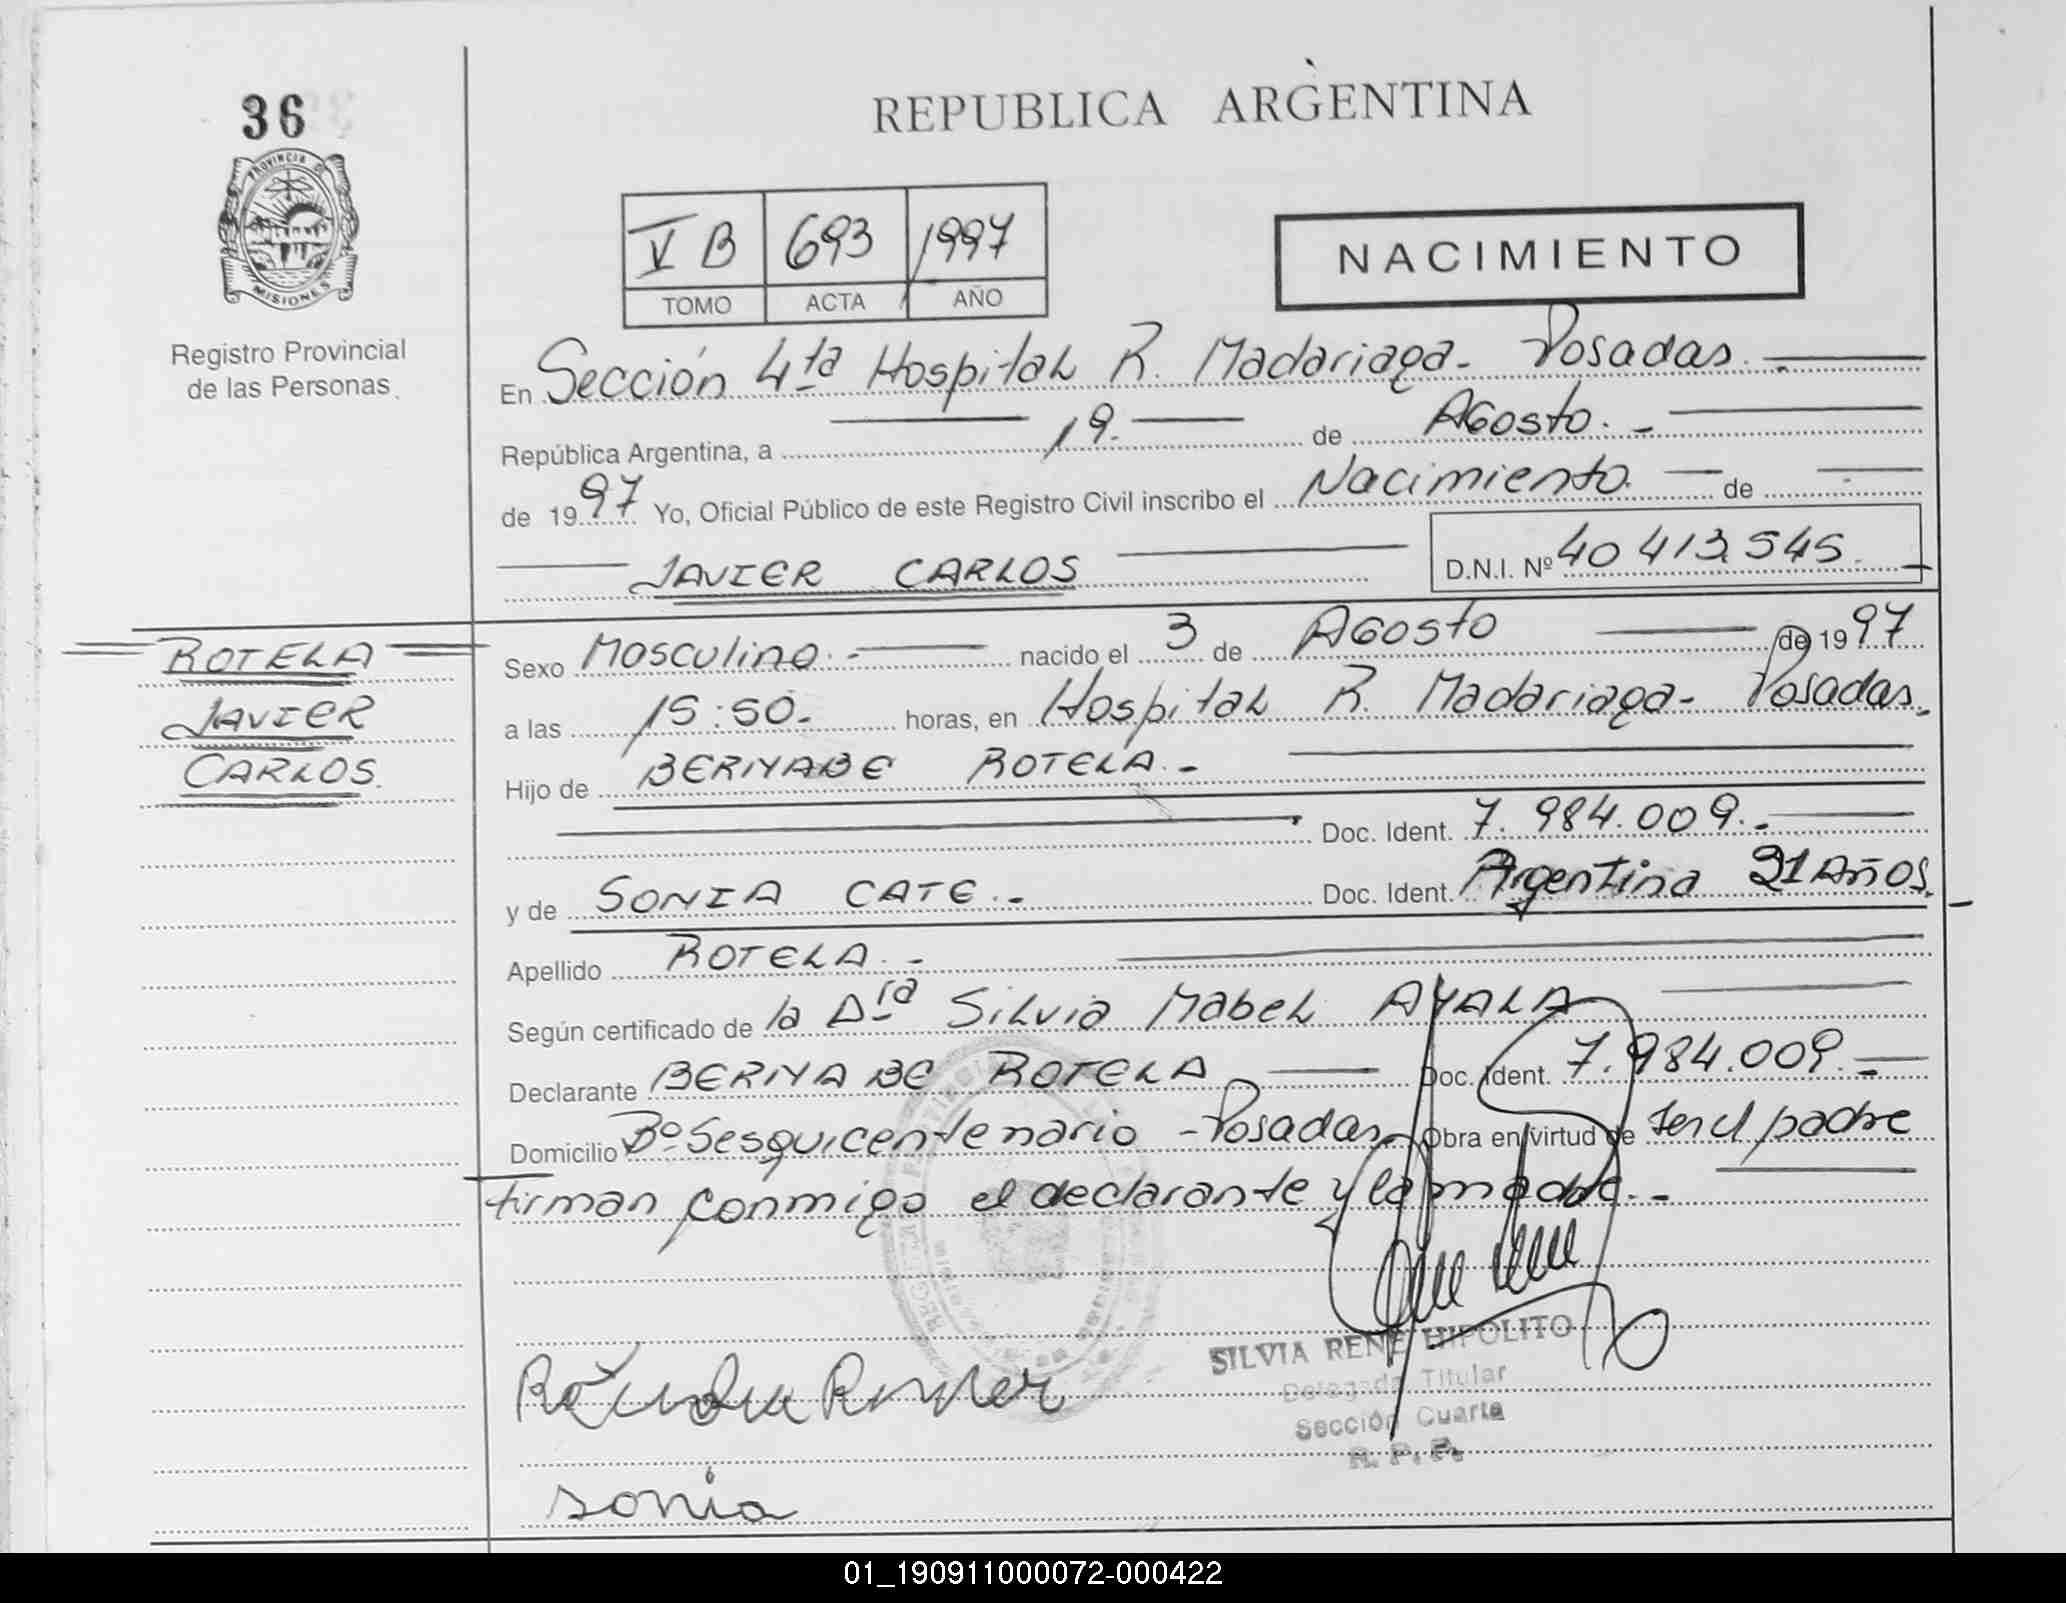 36
PROVINCIA DE MISIONES
Registro Provincial
de las Personas
REPUBLICA ARGENTINA
V B 693 1997
TOMO ACTA AÑO
NACIMIENTO
En Sección 4ta Hospital R. Madariaga - Posadas.
República Argentina, a 19 de Agosto. -
de 1997 Yo, Oficial Público de este Registro Civil inscribo el Nacimiento de
JAVIER CARLOS D.N.I. Nº 40 413.545.
ROTELA
JAVIER
CARLOS.
Sexo Masculino. - nacido el 3 de Agosto de 1997
a las 15:50. horas, en Hospital R. Madariaga - Posadas.
Hijo de BERNABE ROTELA. -
Doc. Ident. 7.984.009. -
y de SONIA CATE. - Doc. Ident. Argentina 21 Años.
Apellido ROTELA. -
Según certificado de la Dra Silvia Mabel AYALA
Declarante BERNABE ROTELA Doc. Ident. 7.984.009. -
Domicilio Bº Sesquicentenario - Posadas. Obra en virtud de ser el padre
firman conmigo el declarante y la madre. -
SILVIA RENE HIPOLITO
Delegada Titular
Sección Cuarta
R. P. P.
sonia
01_190911000072-000422